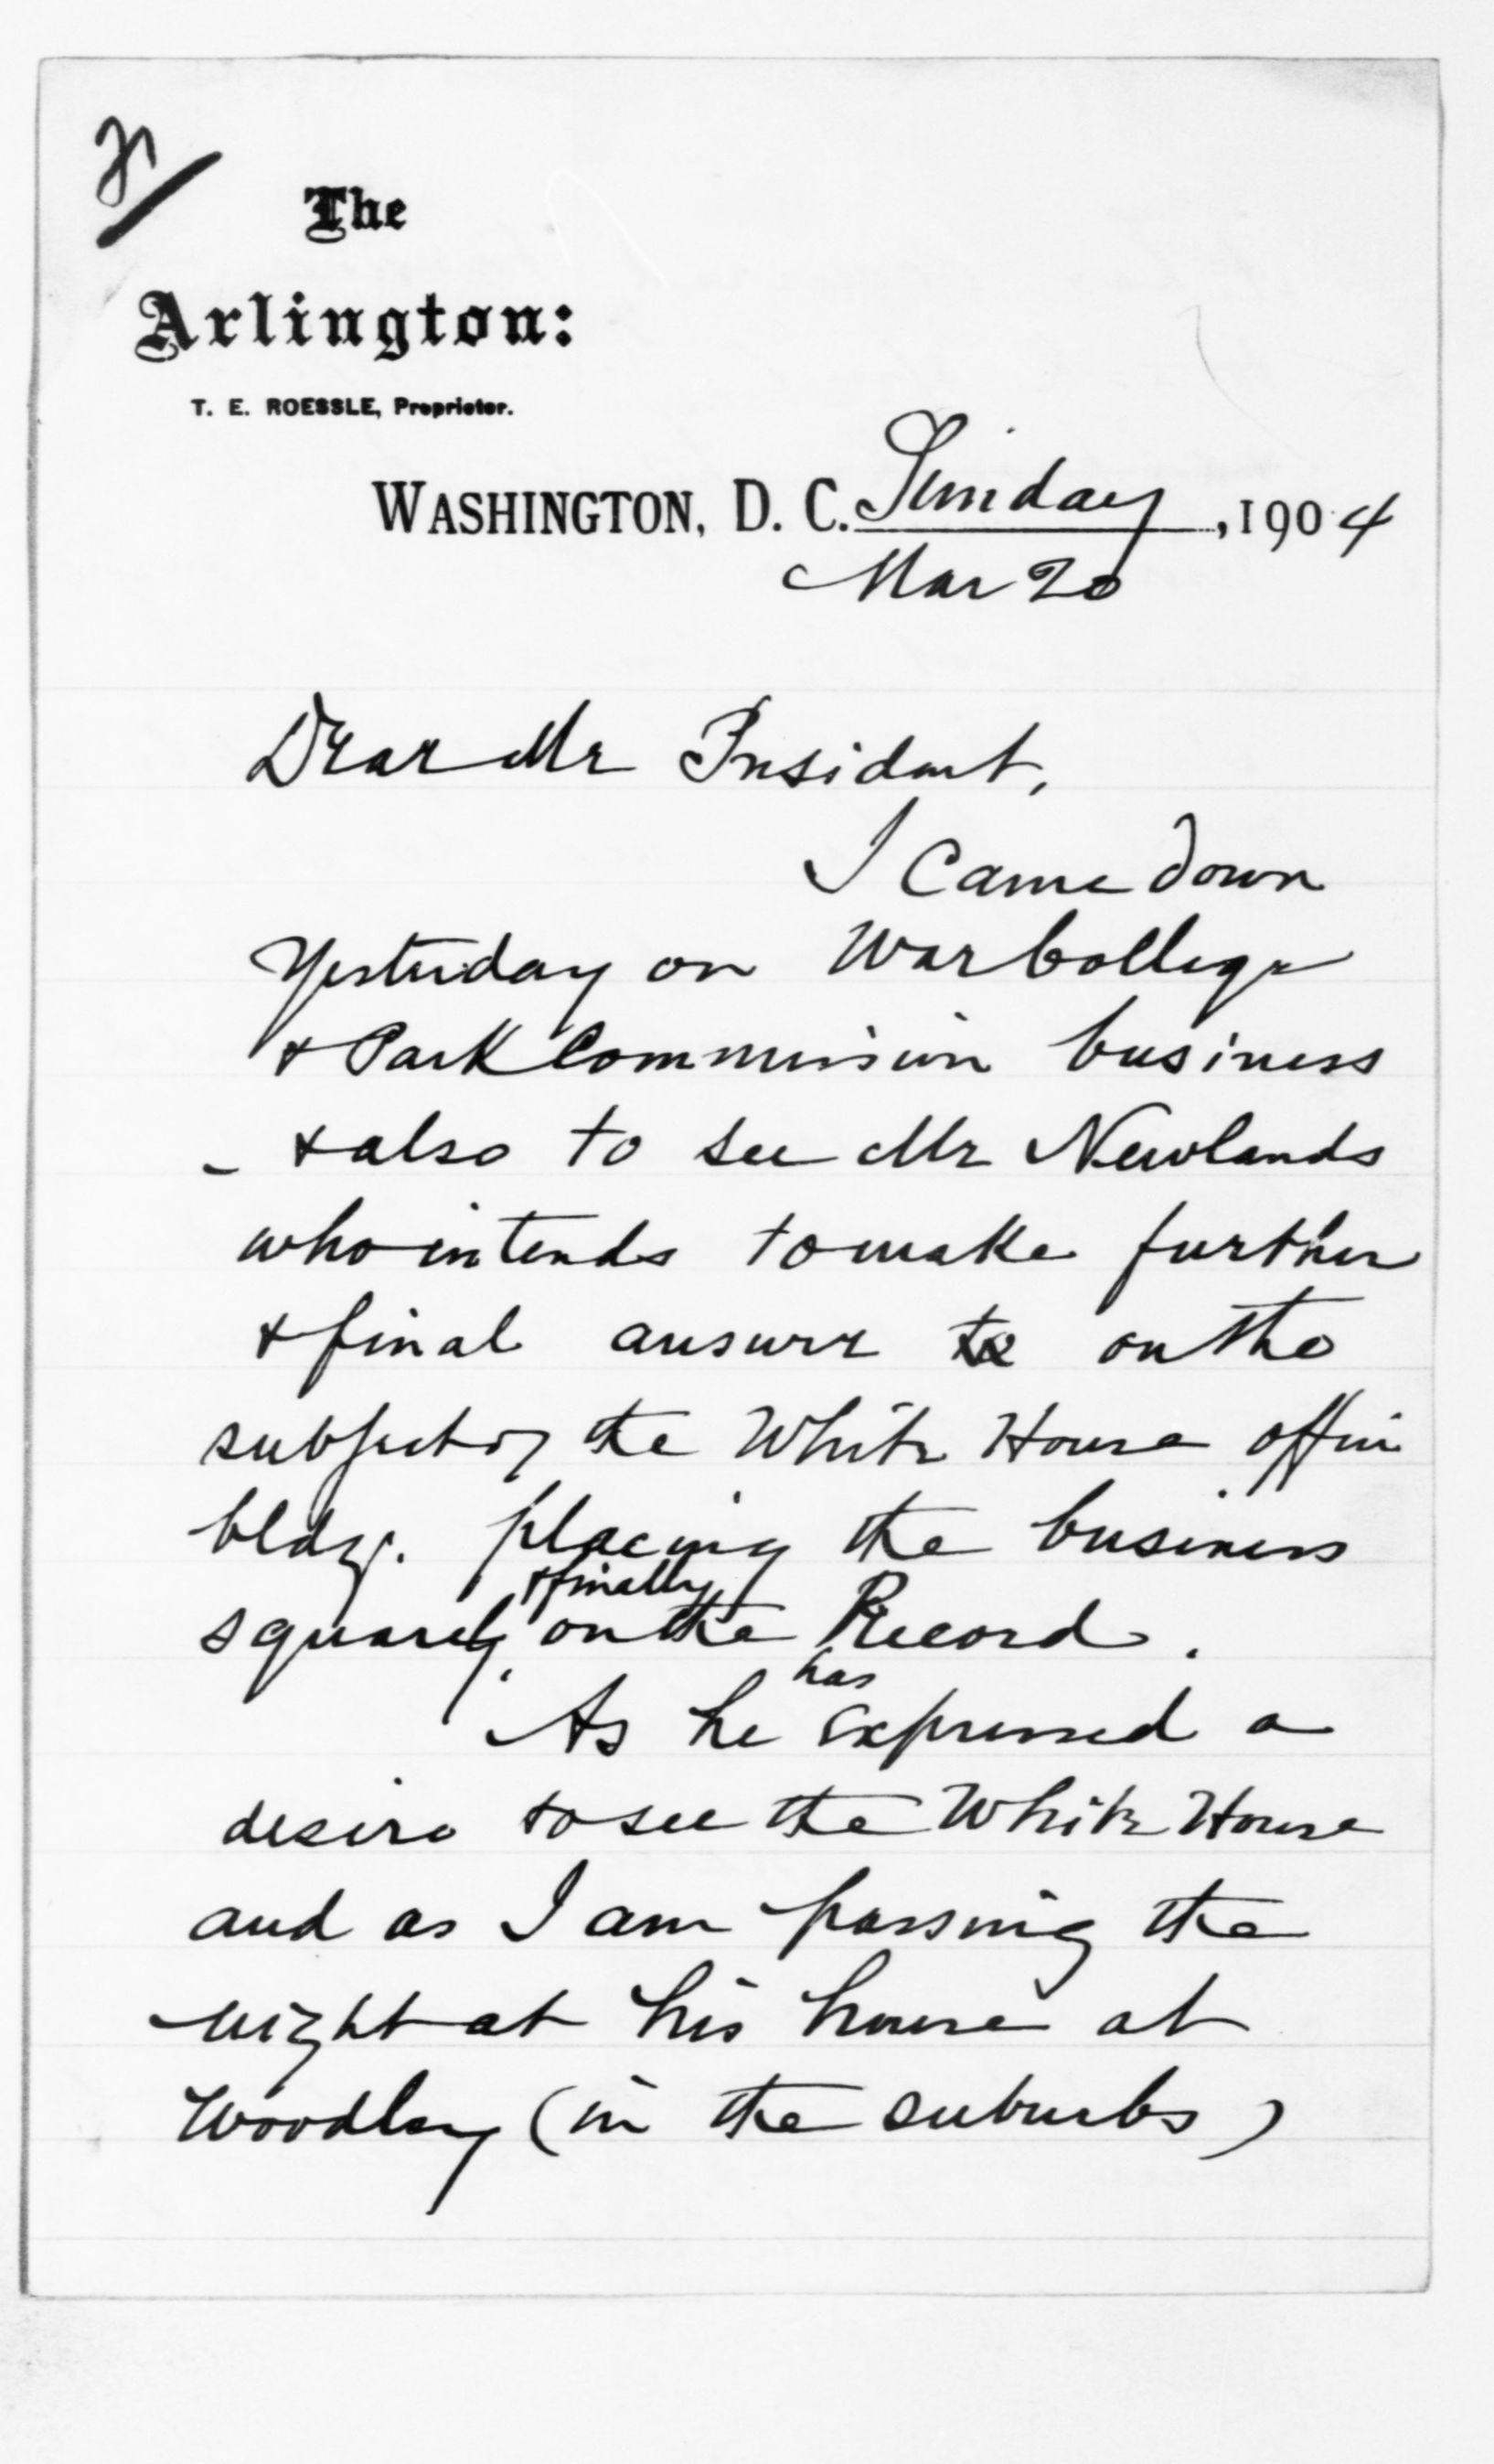 The
Arlington:
T. E. ROESSLE, Proprietor.
WASHINGTON, D. C. Sunday, 1904
Mar 20
Dear Mr President,
I came down
Yesterday on War College
& Park Commission business
- & also to see Mr Newlands
who intends to make further
& final answer to on the
subject of the White House office
bldg. placing the business
& finally
squarely, on the Record.
has
As he expressed a
desire to see the White House
and as I am passing the
night at his house at
Woodley (in the suburbs)